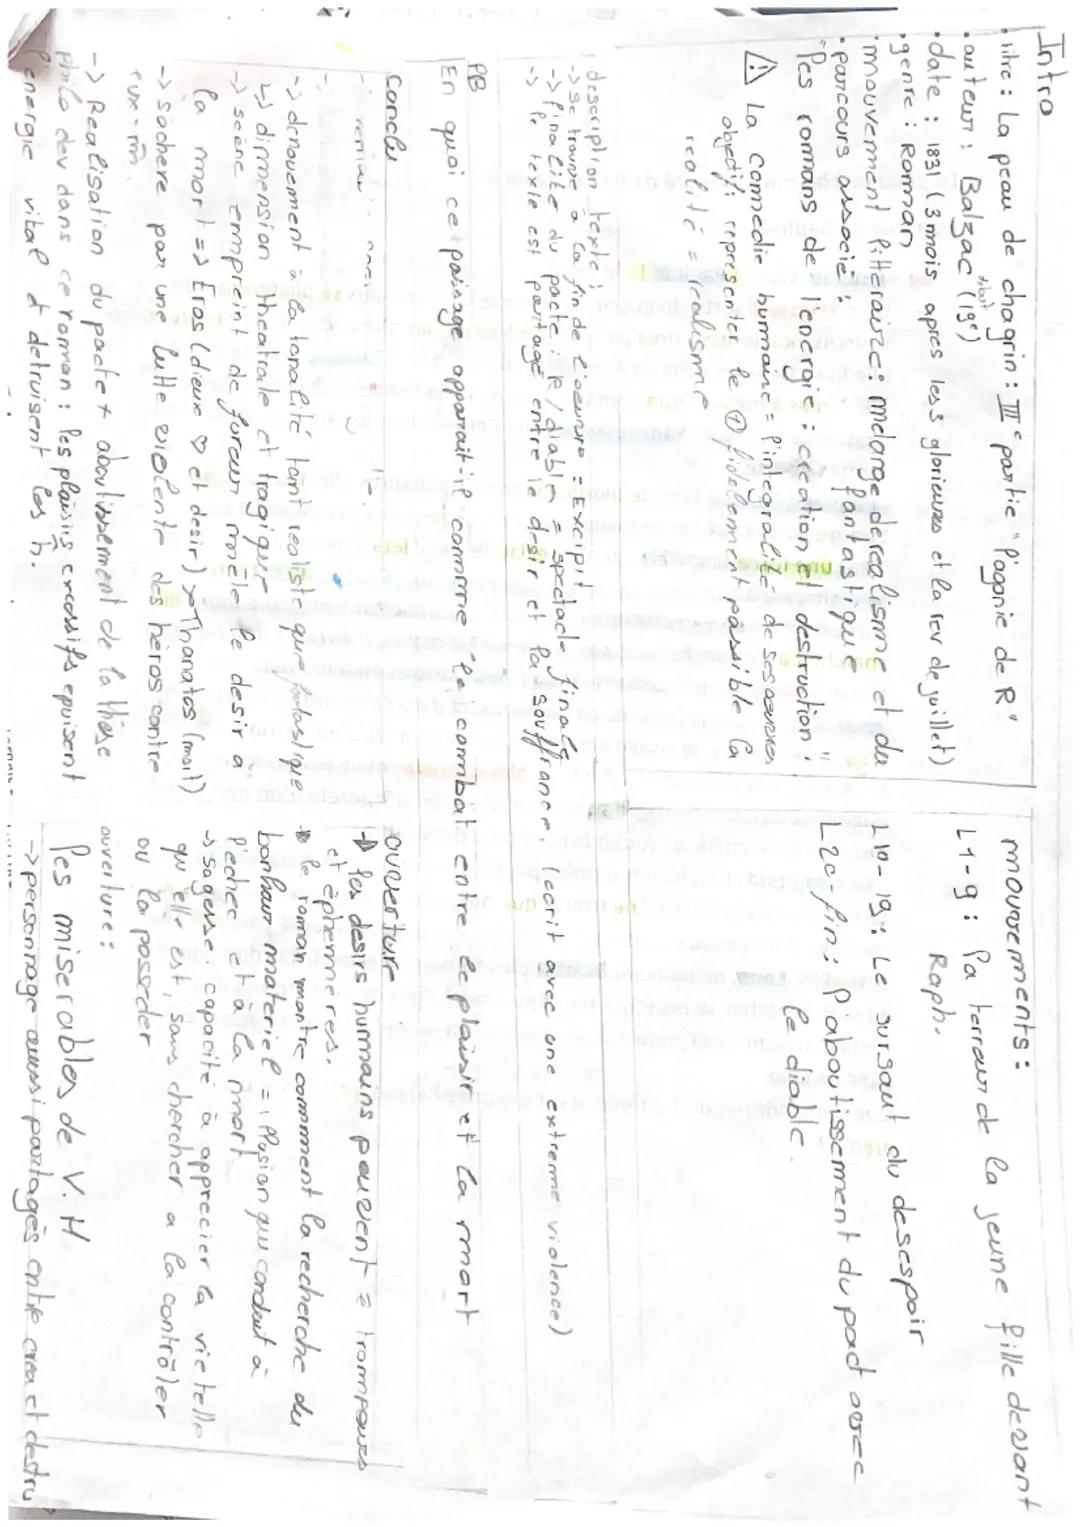 Intro
• titre : La peau de chagrin : III e partie "l'agonie de R"
• auteur : Balzac (19e)
• date : 1831 (3 mois apres les 3 glorieuses et la rev de juillet)
• genre : Romman
• mouvemment litteraire : melange de realisme et de fantastique
• parcours associé :
"les rommans de l'energie : creation et destruction"
⚠ La commedie hummaine : l'integralité de ses oeuvres
objectif, representer le + fidelement possible la
realité = realisme
mouvements :
L1-9 : la terreur de la jeune fille devant
Raph.
L10-19 : Le sursaut du desespoir
L20-fin : l'aboutissement du pact avec
le diable
description texte :
-> se trouve a la fin de l'oeuvre = Excipit
-> finalité du pacte : R/diable = spectacle final
-> le texte est partagé entre le desir et la souffrance (ecrit avec une extreme violence)
PB
En quoi ce passage apparait-il comme "le combat entre le plaisir et la mort
Conclu
-> denouement à la tonalité tant realiste que fantastique
↳ dimmension theatrale et tragique
-> scène emmpreint de fureur mmêle le desir a
la mmort => Eros (dieu ♡ et desir) Thanatos (mort)
-> s'achere par une lutte violente des héros contre
eux-mm
-> Realisation du pacte + aboutissemment de la thèse
philo dev dans ce romman : les plaisirs excessifs epuisent
l'energie vital et detruisent les h.
ouverture
-> les desirs hummains peuvent = trompeurs
et éphemmères.
-> le romman montre commment la recherche du
bonheur materiel = illusion qui conduit à
l'echec et à la mmort
-> sagesse capacité à apprecier la vie telle
qu'elle est, sans chercher a la contrôler
ou la posseder
ouverture :
les miserables de V.H
-> personnage aussi partagés entre crea et destru